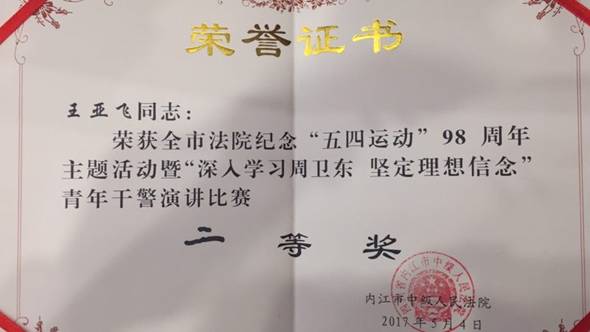 荣誉证书
王亚飞同志：
荣获全市法院纪念“五四运动”98 周年
主题活动暨“深入学习周卫东 坚定理想信念”
青年干警演讲比赛
二等奖
四川省内江市中级人民法院
内江市中级人民法院
2017年5月4日